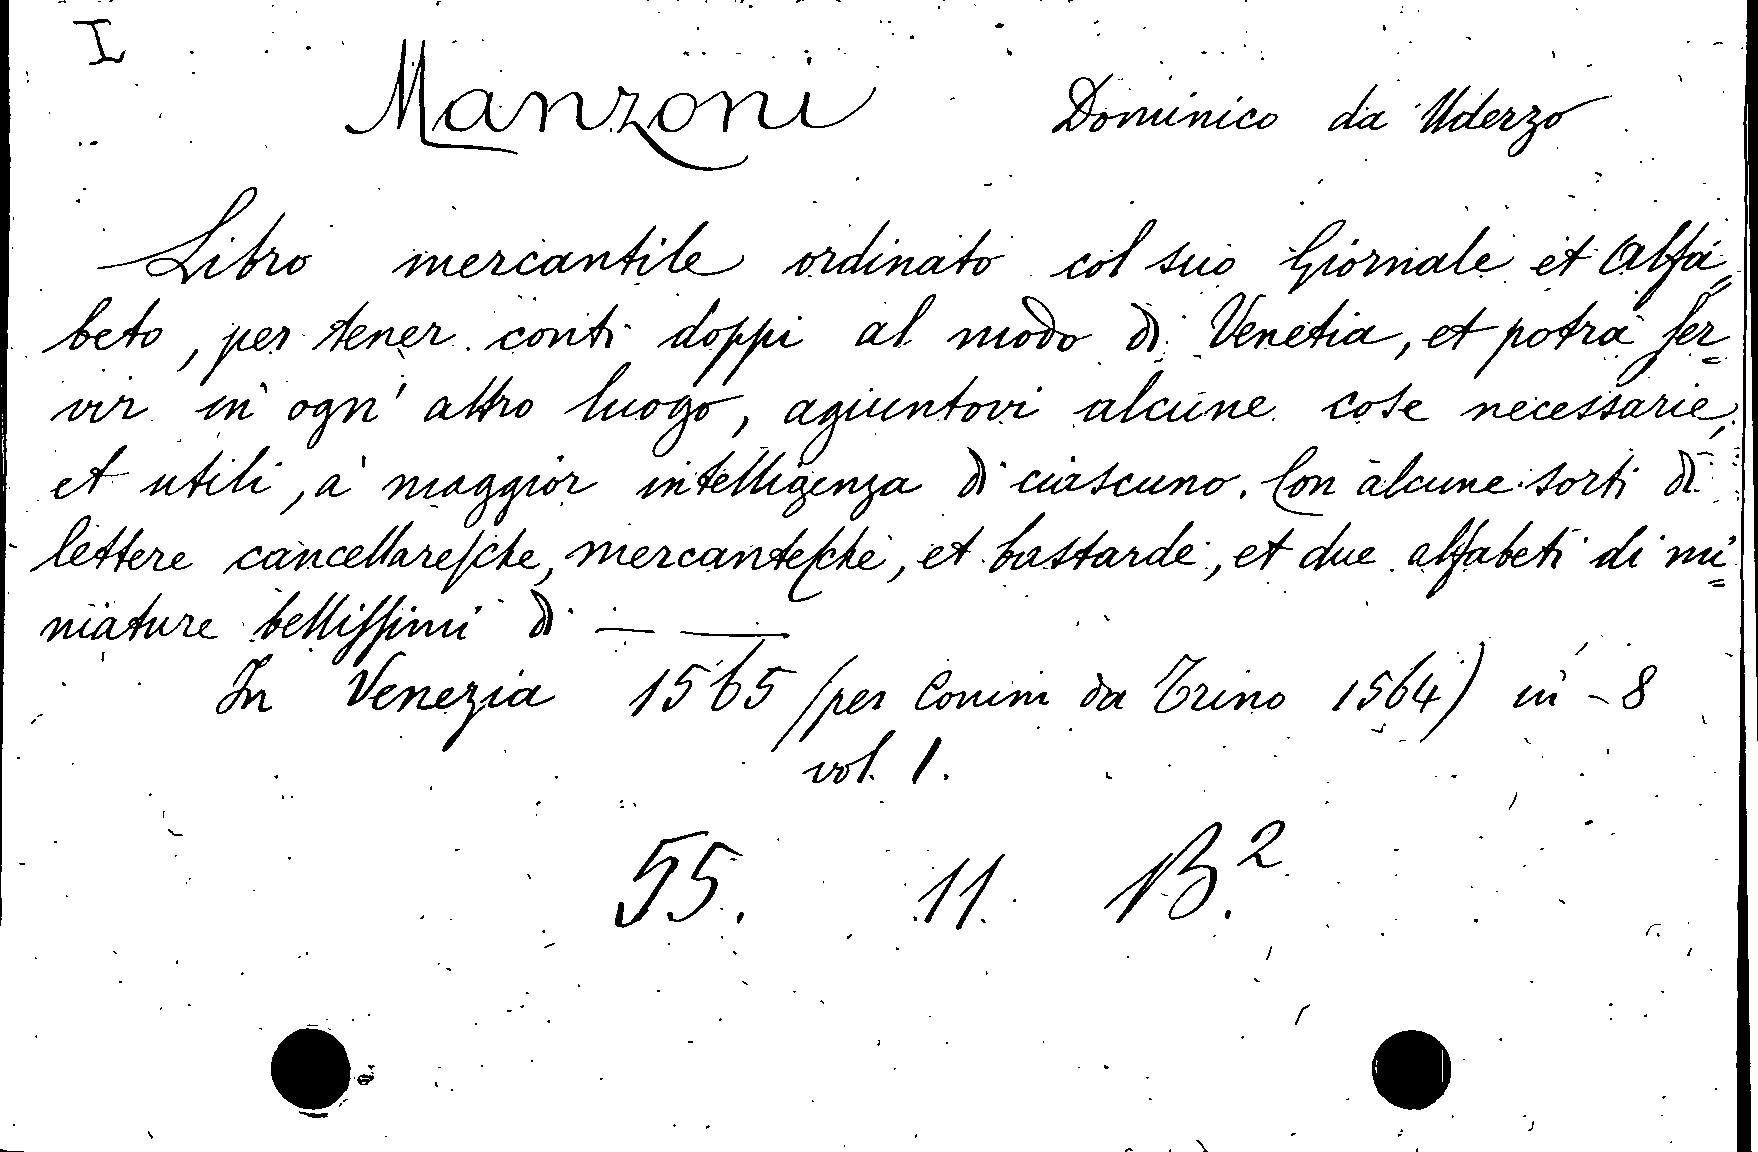 I
Manzoni Dominico da Uderzo
Libro mercantile ordinato col suo Giornale et Alfa=
beto, per tener conti doppi al modo di Venetia, et potrà ser=
vir in ogn' altro luogo, agiuntovi alcune cose necessarie,
et utili, à maggior intelligenza di ciascuno. Con alcune sorti di
lettere cancellaresche, mercantesche, et bastarde, et due alfabeti di mi=
niature bellissimi di — —
In Venezia 1565 (per Comin da Trino 1564) in - 8
vol. 1.
55. 11. B.²